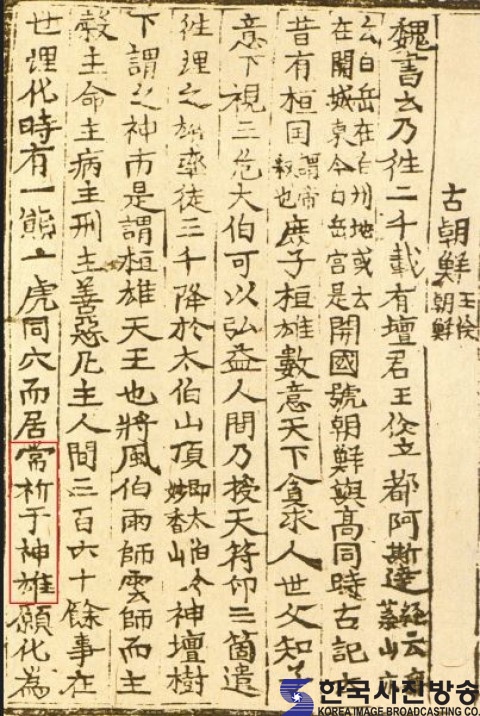 古朝鮮王儉朝鮮
魏書云乃徃二千載有壇君王儉立都阿斯達經云
云白岳在白州地或云在開城東今白岳宮是開國號朝鮮與高同時古記
昔有桓国謂帝釋也庶子桓雄數意天下貪求人世父知
意下視三危大伯可以弘益人間乃授天符印三箇遣
徃理之雄率徒三千降於太伯山頂即太伯今妙香山神壇樹
下謂之神市是謂桓雄天王也將風伯雨師雲師而主
糓主命主病主刑主善惡凡主人間三百六十餘事在
世理化時有一熊一虎同穴而居常祈于神雄願化為
한국사진방송
KOREA IMAGE BROADCASTING CO.